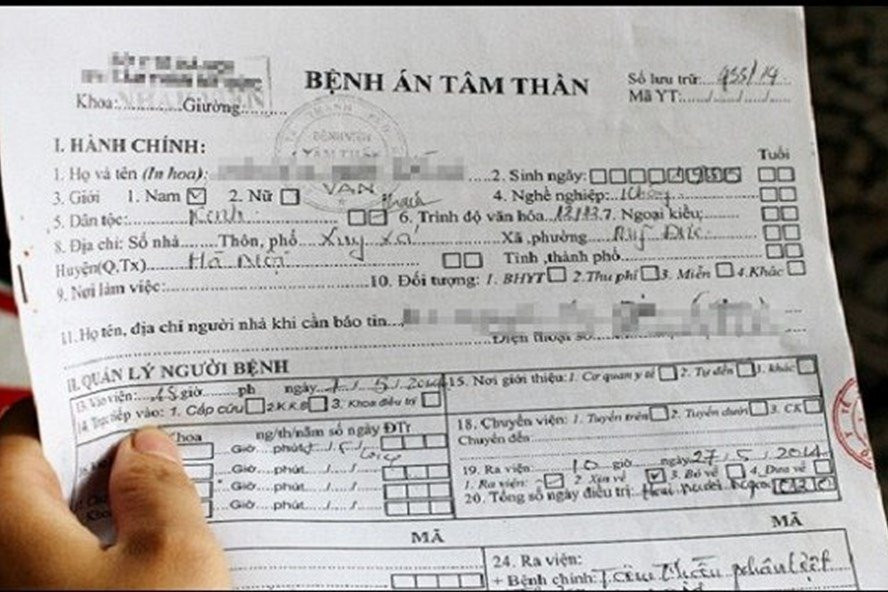 BỆNH ÁN TÂM THẦN
Số lưu trữ: 955/14
Khoa: Giường:
Mã YT:
BỆNH VIỆN
TÂM THẦN
I. HÀNH CHÍNH:
Tuổi
1. Họ và tên (In hoa): 2. Sinh ngày:
VAN
3. Giới 1. Nam 2. Nữ 4. Nghề nghiệp:
5. Dân tộc: Kinh 6. Trình độ văn hóa 12/12 7. Ngoại kiều:
8. Địa chỉ: Số nhà Thôn, phố Xuy Xá Xã, phường
Huyện(Q,Tx) Tỉnh, thành phố
9. Nơi làm việc: 10. Đối tượng: 1. BHYT 2. Thu phí 3. Miễn 4. Khác
11. Họ tên, địa chỉ người nhà khi cần báo tin
Điện thoại số
II. QUẢN LÝ NGƯỜI BỆNH
13. Vào viện: 15 giờ ph ngày 7/5/2014 15. Nơi giới thiệu: 1. Cơ quan y tế 2. Tự đến 3. Khác
14. Trực tiếp vào: 1. Cấp cứu 2. K.K.B 3. Khoa điều trị
Khoa ng/th/năm số ngày ĐTr
Giờ phút
Giờ phút
Giờ phút
Giờ phút
18. Chuyển viện: 1. Tuyến trên 2. Tuyến dưới 3. CK
Chuyển đến
19. Ra viện: 10 giờ ngày 27/5/2014
1. Ra viện: 2. Xin về 3. Bỏ về 4. Đưa về
20. Tổng số ngày điều trị: Hai mươi ngày 020
MÃ
MÃ
24. Ra viện:
+ Bệnh chính: Tâm thần phân liệt